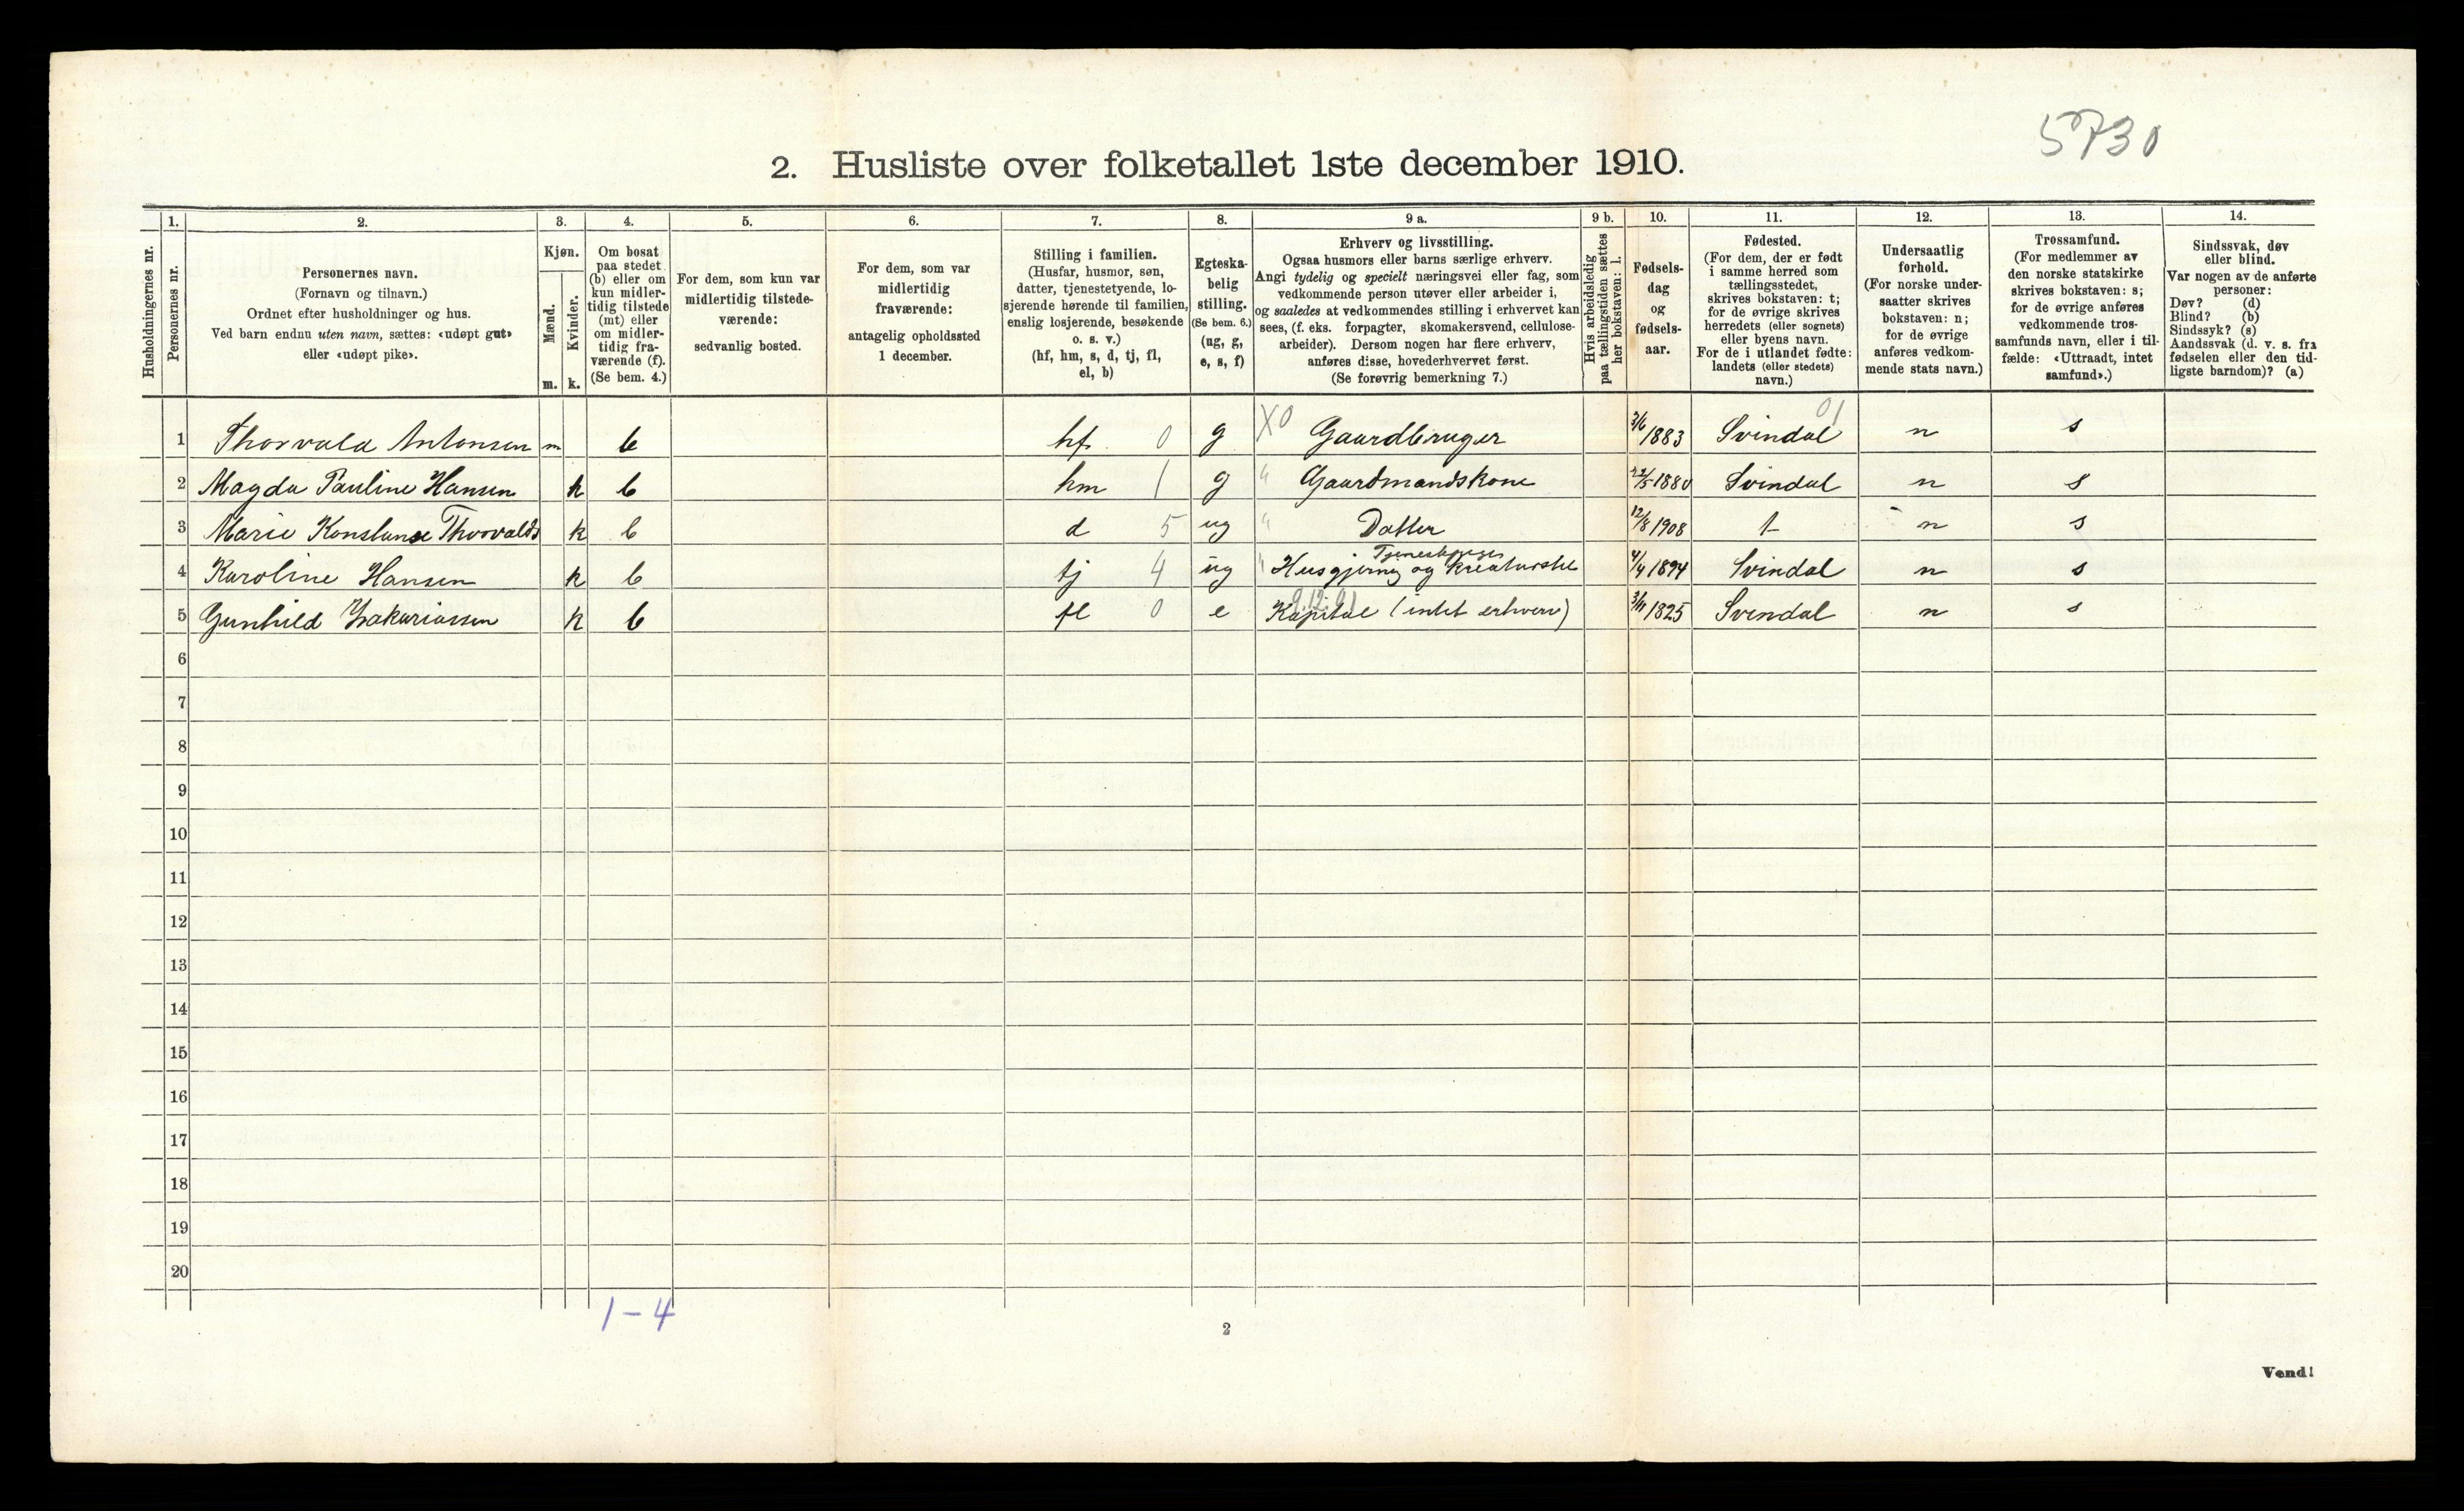 5730
2. Husliste over folketallet 1ste december 1910.
Husholdningernes nr.
1.
Personernes nr.
2.
Personernes navn.
(Fornavn og tilnavn.)
Ordnet efter husholdninger og hus.
Ved barn endnu uten navn, sættes: «udøpt gut»
eller «udøpt pike».
3.
Kjøn.
Mænd.
Kvinder.
m. k.
4.
Om bosat
paa stedet
(b) eller om
kun midler-
tidig tilstede
(mt) eller
om midler-
tidig fra-
værende (f).
(Se bem. 4.)
5.
For dem, som kun var
midlertidig tilstede-
værende:
sedvanlig bosted.
6.
For dem, som var
midlertidig
fraværende:
antagelig opholdssted
1 december.
7.
Stilling i familien.
(Husfar, husmor, søn,
datter, tjenestetyende, lo-
sjerende hørende til familien,
enslig losjerende, besøkende
o. s. v.)
(hf, hm, s, d, tj, fl,
el, b)
8.
Egteska-
belig
stilling.
(Se bem. 6.)
(ug, g,
e, s, f)
9 a.
Erhverv og livsstilling.
Ogsaa husmors eller barns særlige erhverv.
Angi tydelig og specielt næringsvei eller fag, som
vedkommende person utøver eller arbeider i,
og saaledes at vedkommendes stilling i erhvervet kan
sees, (f. eks. forpagter, skomakersvend, cellulose-
arbeider). Dersom nogen har flere erhverv,
anføres disse, hovederhvervet først.
(Se forøvrig bemerkning 7.)
9 b.
Hvis arbeidsledig
paa tællingstiden sættes
her bokstaven: l.
10.
Fødsels-
dag
og
fødsels-
aar.
11.
Fødested.
(For dem, der er født
i samme herred som
tællingsstedet,
skrives bokstaven: t;
for de øvrige skrives
herredets (eller sognets)
eller byens navn.
For de i utlandet fødte:
landets (eller stedets)
navn.)
12.
Undersaatlig
forhold.
(For norske under-
saatter skrives
bokstaven: n;
for de øvrige
anføres vedkom-
mende stats navn.)
13.
Trossamfund.
(For medlemmer av
den norske statskirke
skrives bokstaven: s;
for de øvrige anføres
vedkommende tros-
samfunds navn, eller i til-
fælde: «Uttraadt, intet
samfund».)
14.
Sindssvak, døv
eller blind.
Var nogen av de anførte
personer:
Døv? (d)
Blind? (b)
Sindssyk? (s)
Aandssvak (d. v. s. fra
fødselen eller den tid-
ligste barndom)? (a)
01
1 Thorvald Antonsen m b hf 0 g X0 Gaardbruger 3/6 1883 Svindal n s
2 Magda Pauline Hansen k b hm 1 g " Gaardmandskone 22/5 1880 Svindal n s
3 Marie Konstanse Thorvalds k b d 5 ug " Datter 12/8 1908 t n s
Tjenestepige
4 Karoline Hansen k b tj 4 ug " Husgjerning og kreaturstel 4/4 1894 Svindal n s
5 Gunhild Zakariassen k b fl 0 e Kapital (intet erhverv) 3/11 1825 Svindal n s
6
7
8
9
10
11
12
13
14
15
16
17
18
19
20
1-4
2
Vend!